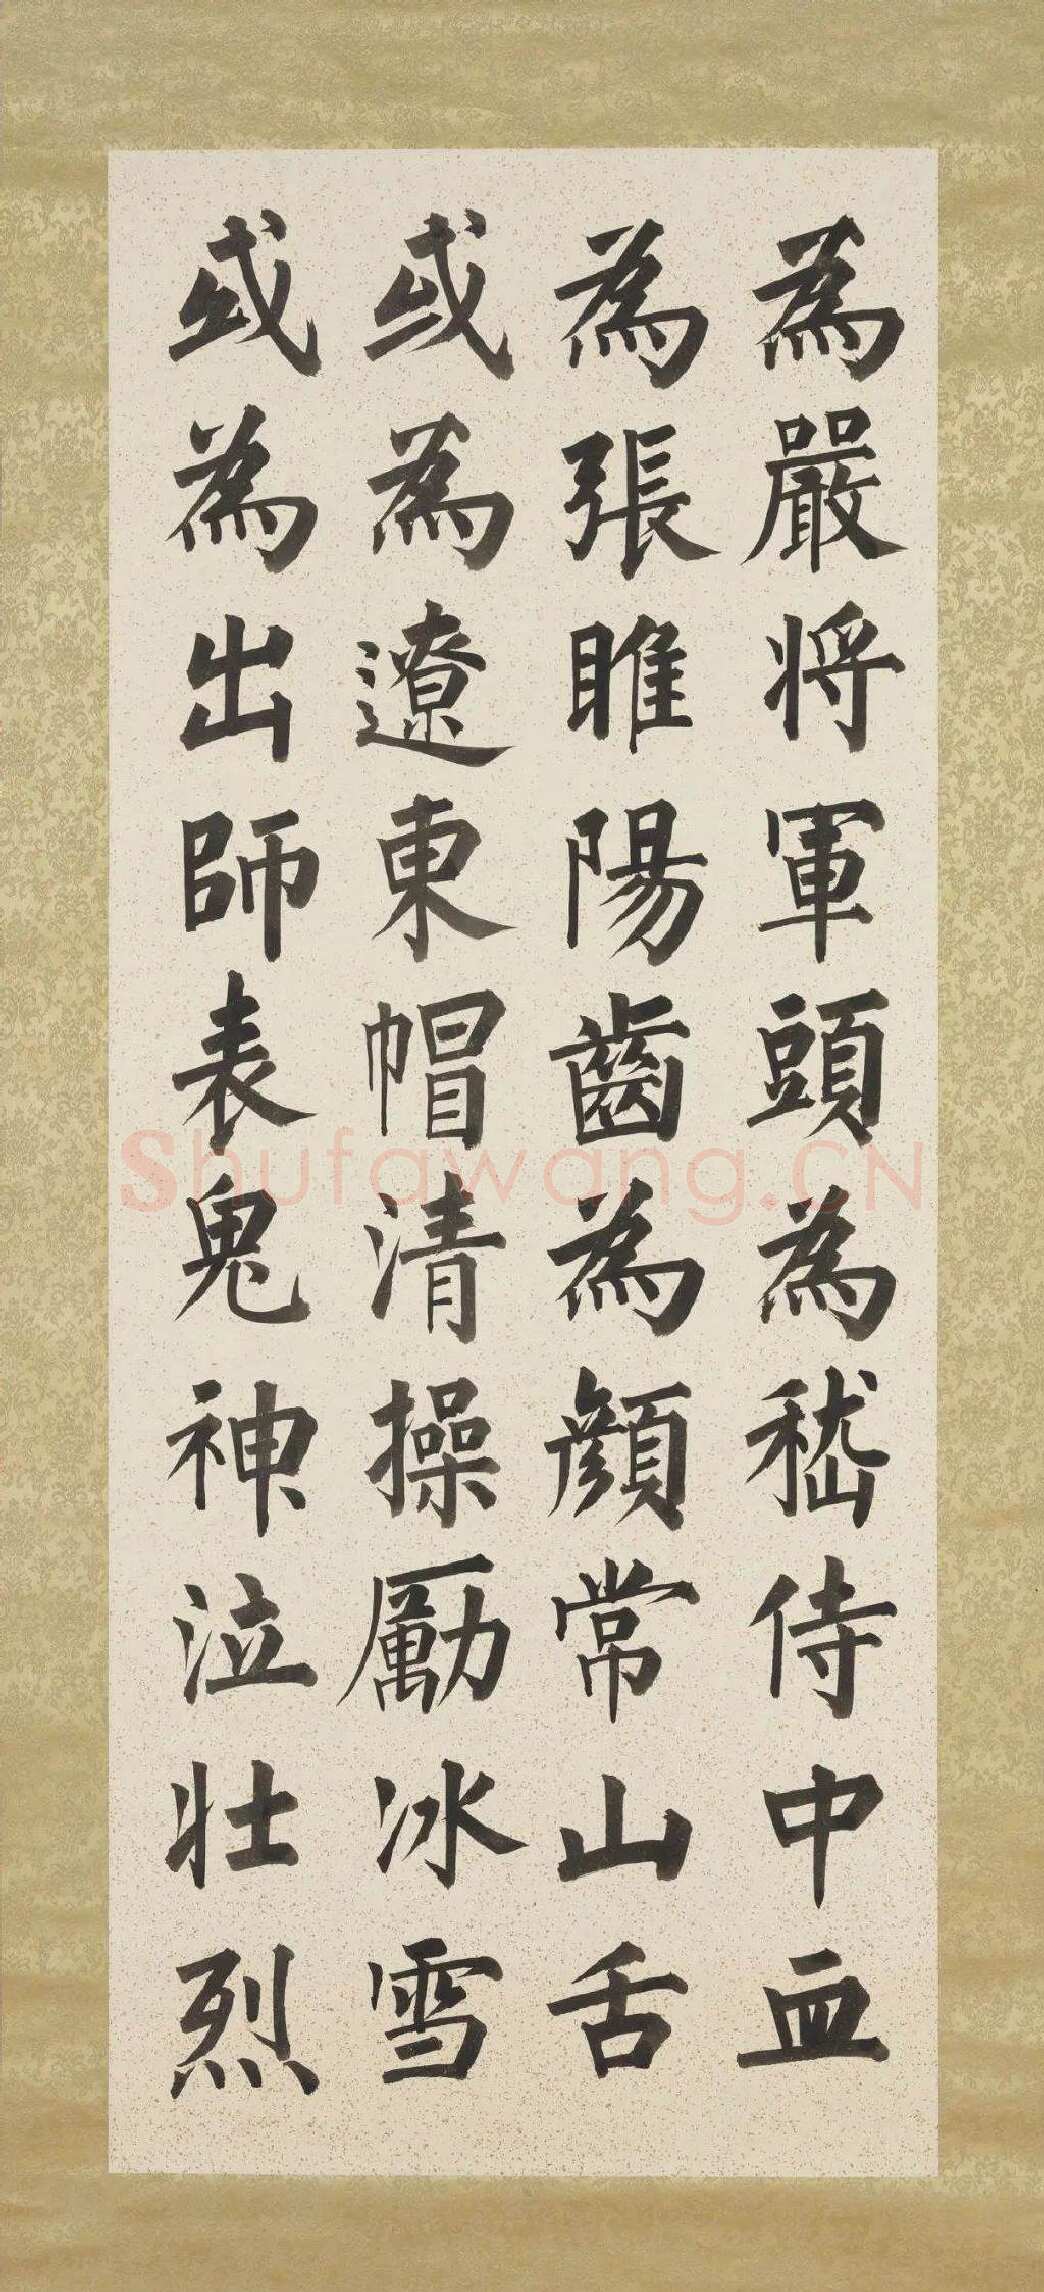 為嚴将軍頭為嵇侍中血
為張睢陽齒為顔常山舌
或為遼東帽清操厲冰雪
或為出師表鬼神泣壮烈
Shufawang.CN